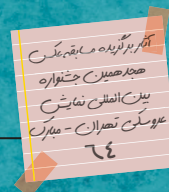 آثار برگزیده مسابقه عکس
هجدهمین جشنواره
بین‌المللی نمایش
عروسکی تهران - مبارک
٦٤